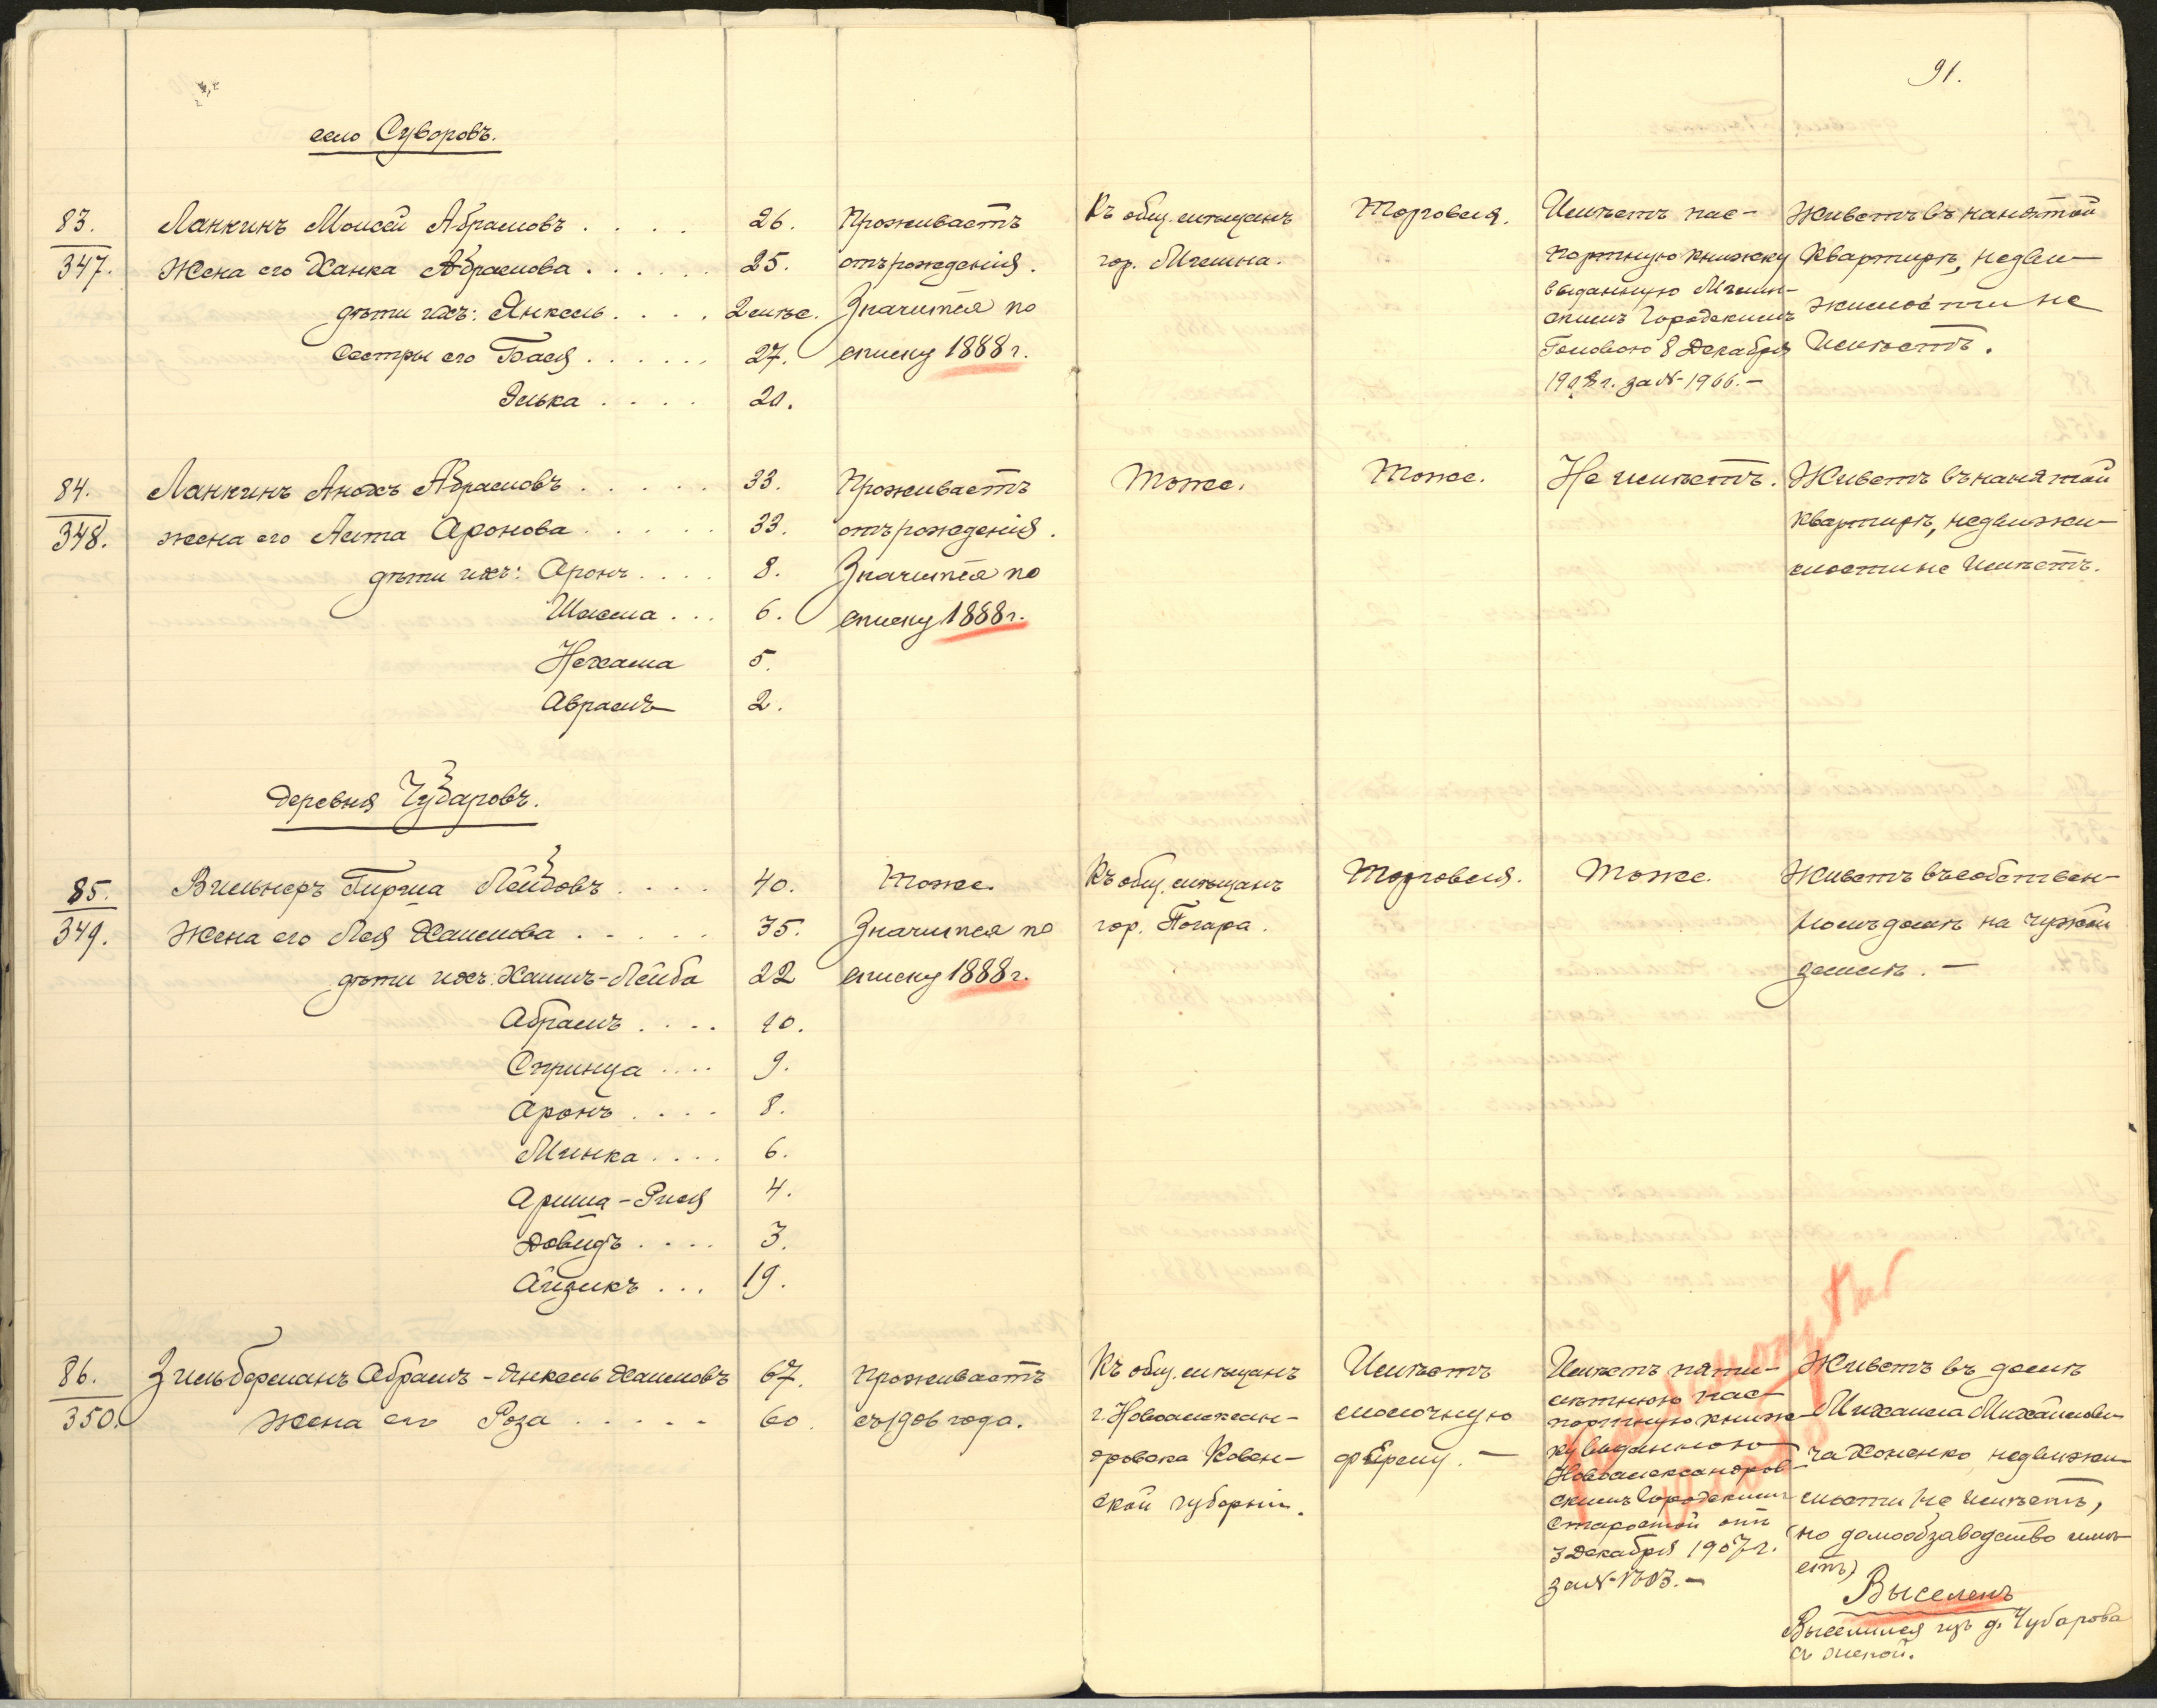 91.
село Суворовъ.
83.
347.
Ланкинъ Моисей Абрамовъ . . . . 26.
Жена его Ханка Абрамова . . . . . . 25.
дѣти ихъ: Янкель . . . . 2 мѣс.
Сестры его Бася . . . . . . 27.
Элька . . . . 20.
Проживаетъ
отъ рожденія.
Значится по
списку 1888 г.
Къ общ. мѣщанъ
гор. Мглина.
Торговля.
Имѣетъ пас-
портную книжку
выданную Мглин-
скимъ Городскимъ
Головою 8 Декабря
1908 г. за № 1966. —
Живетъ въ нанятой
квартирѣ, недви-
жимости не
имѣетъ.
84.
348.
Ланкинъ Анохъ Абрамовъ . . . . . 33.
жена его Аста Аронова . . . . . 33.
дѣти ихъ: Аронъ . . . . 8.
Шлема . . . 6.
Нехама 5.
Аврамъ 2.
Проживаетъ
отъ рожденія.
Значится по
списку 1888 г.
Тоже.
Тоже.
Не имѣетъ.
Живетъ въ нанятой
квартирѣ, недвижи-
мости не имѣетъ.
деревня Чубаровъ.
85.
349.
Вильнеръ Гирша Лейбовъ . . . . 40.
Жена его Лея Хаимова . . . . . 35.
дѣти ихъ: Хаимъ-Лейба 22
Абрамъ . . . . 10.
Спринца . . . . 9.
Аронъ . . . . 8.
Минка . . . . 6.
Ариша-Рися 4.
Довидъ . . . . 3.
Айзикъ . . . 19.
Тоже.
Значится по
списку 1888 г.
Къ общ. мѣщанъ
гор. Погара.
Торговля.
Тоже.
Живетъ въ собствен-
номъ домѣ на чужой
землѣ. —
86.
350.
Зильберманъ Абрамъ-Янкель Хаимовъ 67.
Жена его Роза . . . . . 60.
Проживаетъ
съ 1906 года.
Къ общ. мѣщанъ
г. Новоалексан-
дровска Ковен-
ской губерніи.
Имѣетъ
молочную
ферму. —
Имѣетъ пяти-
лѣтнюю пас-
портную книж-
ку выданною
Новоалександров-
скимъ Городскимъ
Старостой отъ
3 Декабря 1907 г.
за № 1303. —
Живетъ въ домѣ
Михаила Михайлови-
ча Хоменко, недвижи-
мости не имѣетъ,
(но домообзаводство имѣ-
етъ)
Выселенъ
Выселился изъ д. Чубарова
съ женой.